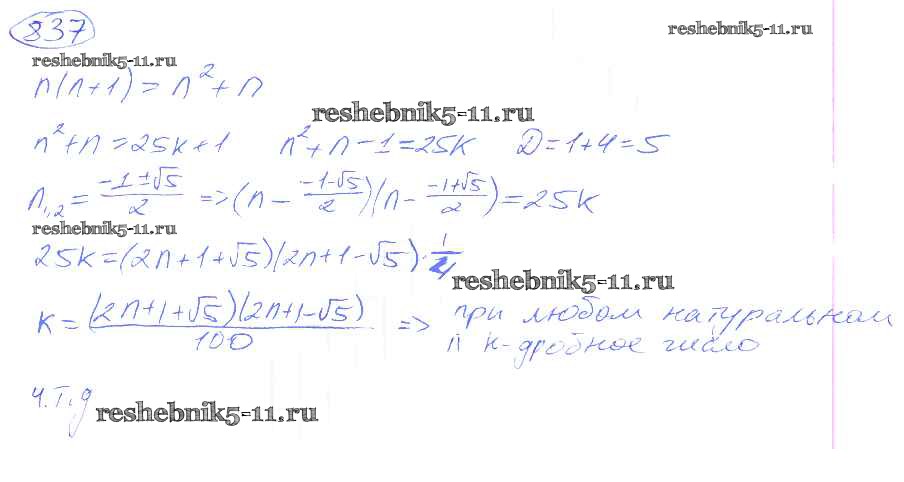 837
reshebnik5-11.ru
reshebnik5-11.ru
n(n+1) = n² + n
reshebnik5-11.ru
n² + n = 25k + 1 n² + n - 1 = 25k D = 1+4 = 5
n₁,₂ = (-1±√5)/2 => (n - (-1-√5)/2)(n - (-1+√5)/2) = 25k
reshebnik5-11.ru
25k = (2n+1+√5)(2n+1-√5)·1/4
reshebnik5-11.ru
k = (2n+1+√5)(2n+1-√5)/100 => при любом натуральном
n k-дробное число
ч.т.д
reshebnik5-11.ru